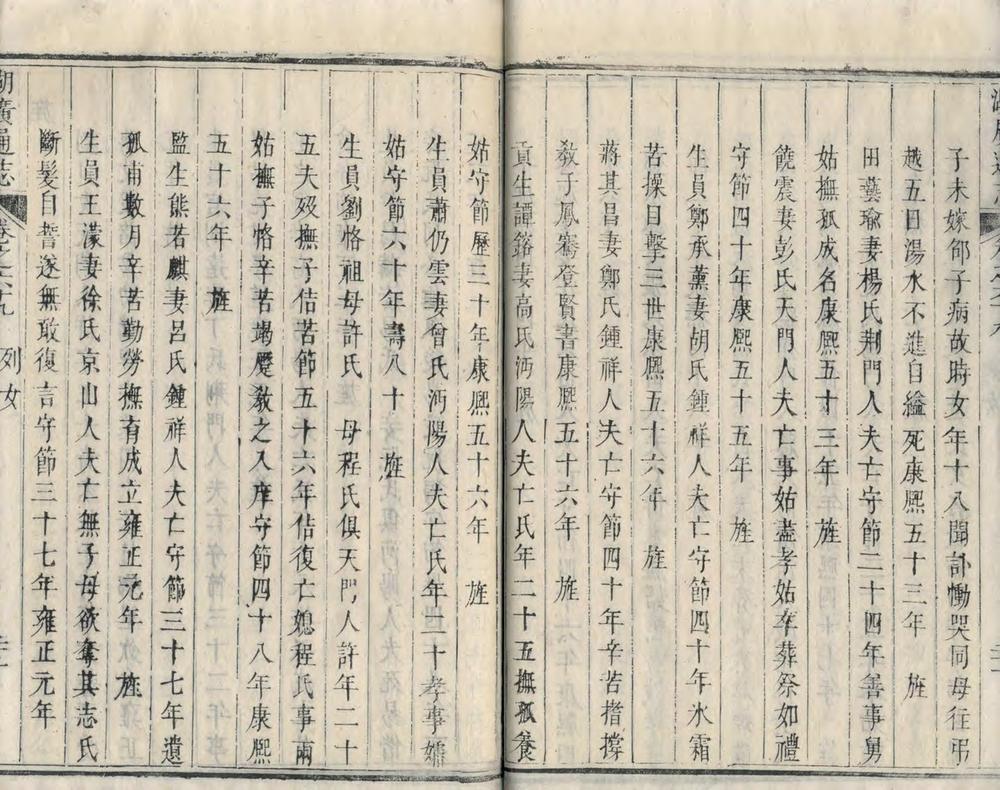 子未嫁郁子病故時女年十八聞訃慟哭同母往弔
越五日湯水不進自縊死康熙五十三年　旌
田藝瑜妻楊氏荆門人夫亡守節二十四年善事舅
姑撫孤成名康熙五十三年　旌
饒震妻彭氏天門人夫亡事姑盡孝姑卒葬祭如禮
守節四十年康熙五十五年　旌
生員鄭承薰妻胡氏鍾祥人夫亡守節四十年氷霜
苦操目擊三世康熙五十六年　旌
蔣其昌妻鄭氏鍾祥人夫亡守節四十年辛苦撐
敎子鳳騫登賢書康熙五十六年　旌
貢生譚鎔妻高氏沔陽人夫亡氏年二十五撫孤養
姑守節歷三十年康熙五十六年　旌
生員蕭仍雲妻曾氏沔陽人夫亡氏年二十孝事孀
姑守節六十年壽八十　旌
生員劉恪祖母許氏　母程氏俱天門人許年二十
五夫歿撫子佶苦節五十六年佶復亡媳程氏事兩
姑撫子恪辛苦竭蹷敎之入庠守節四十八年康熙
五十六年　旌
監生熊若麒妻呂氏鍾祥人夫亡守節三十七年遺
孤甫數月辛苦勤勞撫育成立雍正元年　旌
生員王濛妻徐氏京山人夫亡無子母欲奪其志氏
斷髮自誓遂無敢復言守節三十七年雍正元年
湖廣通志　卷之六十九　列女